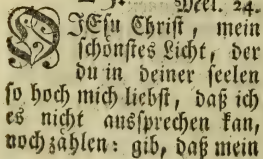 Mel. 24.
O JEsu Christ, mein
schönstes Licht, der
du in deiner seelen
so hoch mich liebst, daß ich
es nicht aussprechen kan,
noch zählen: gib, daß mein